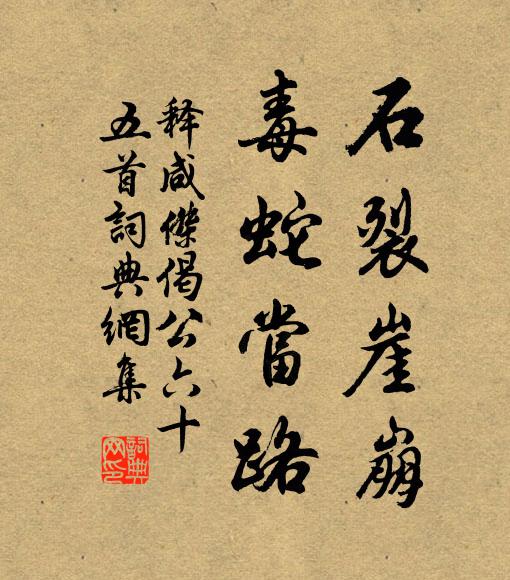 石裂崖崩
毒蛇當路
释咸傑偈公六十
五首詞典網集
詞典网印